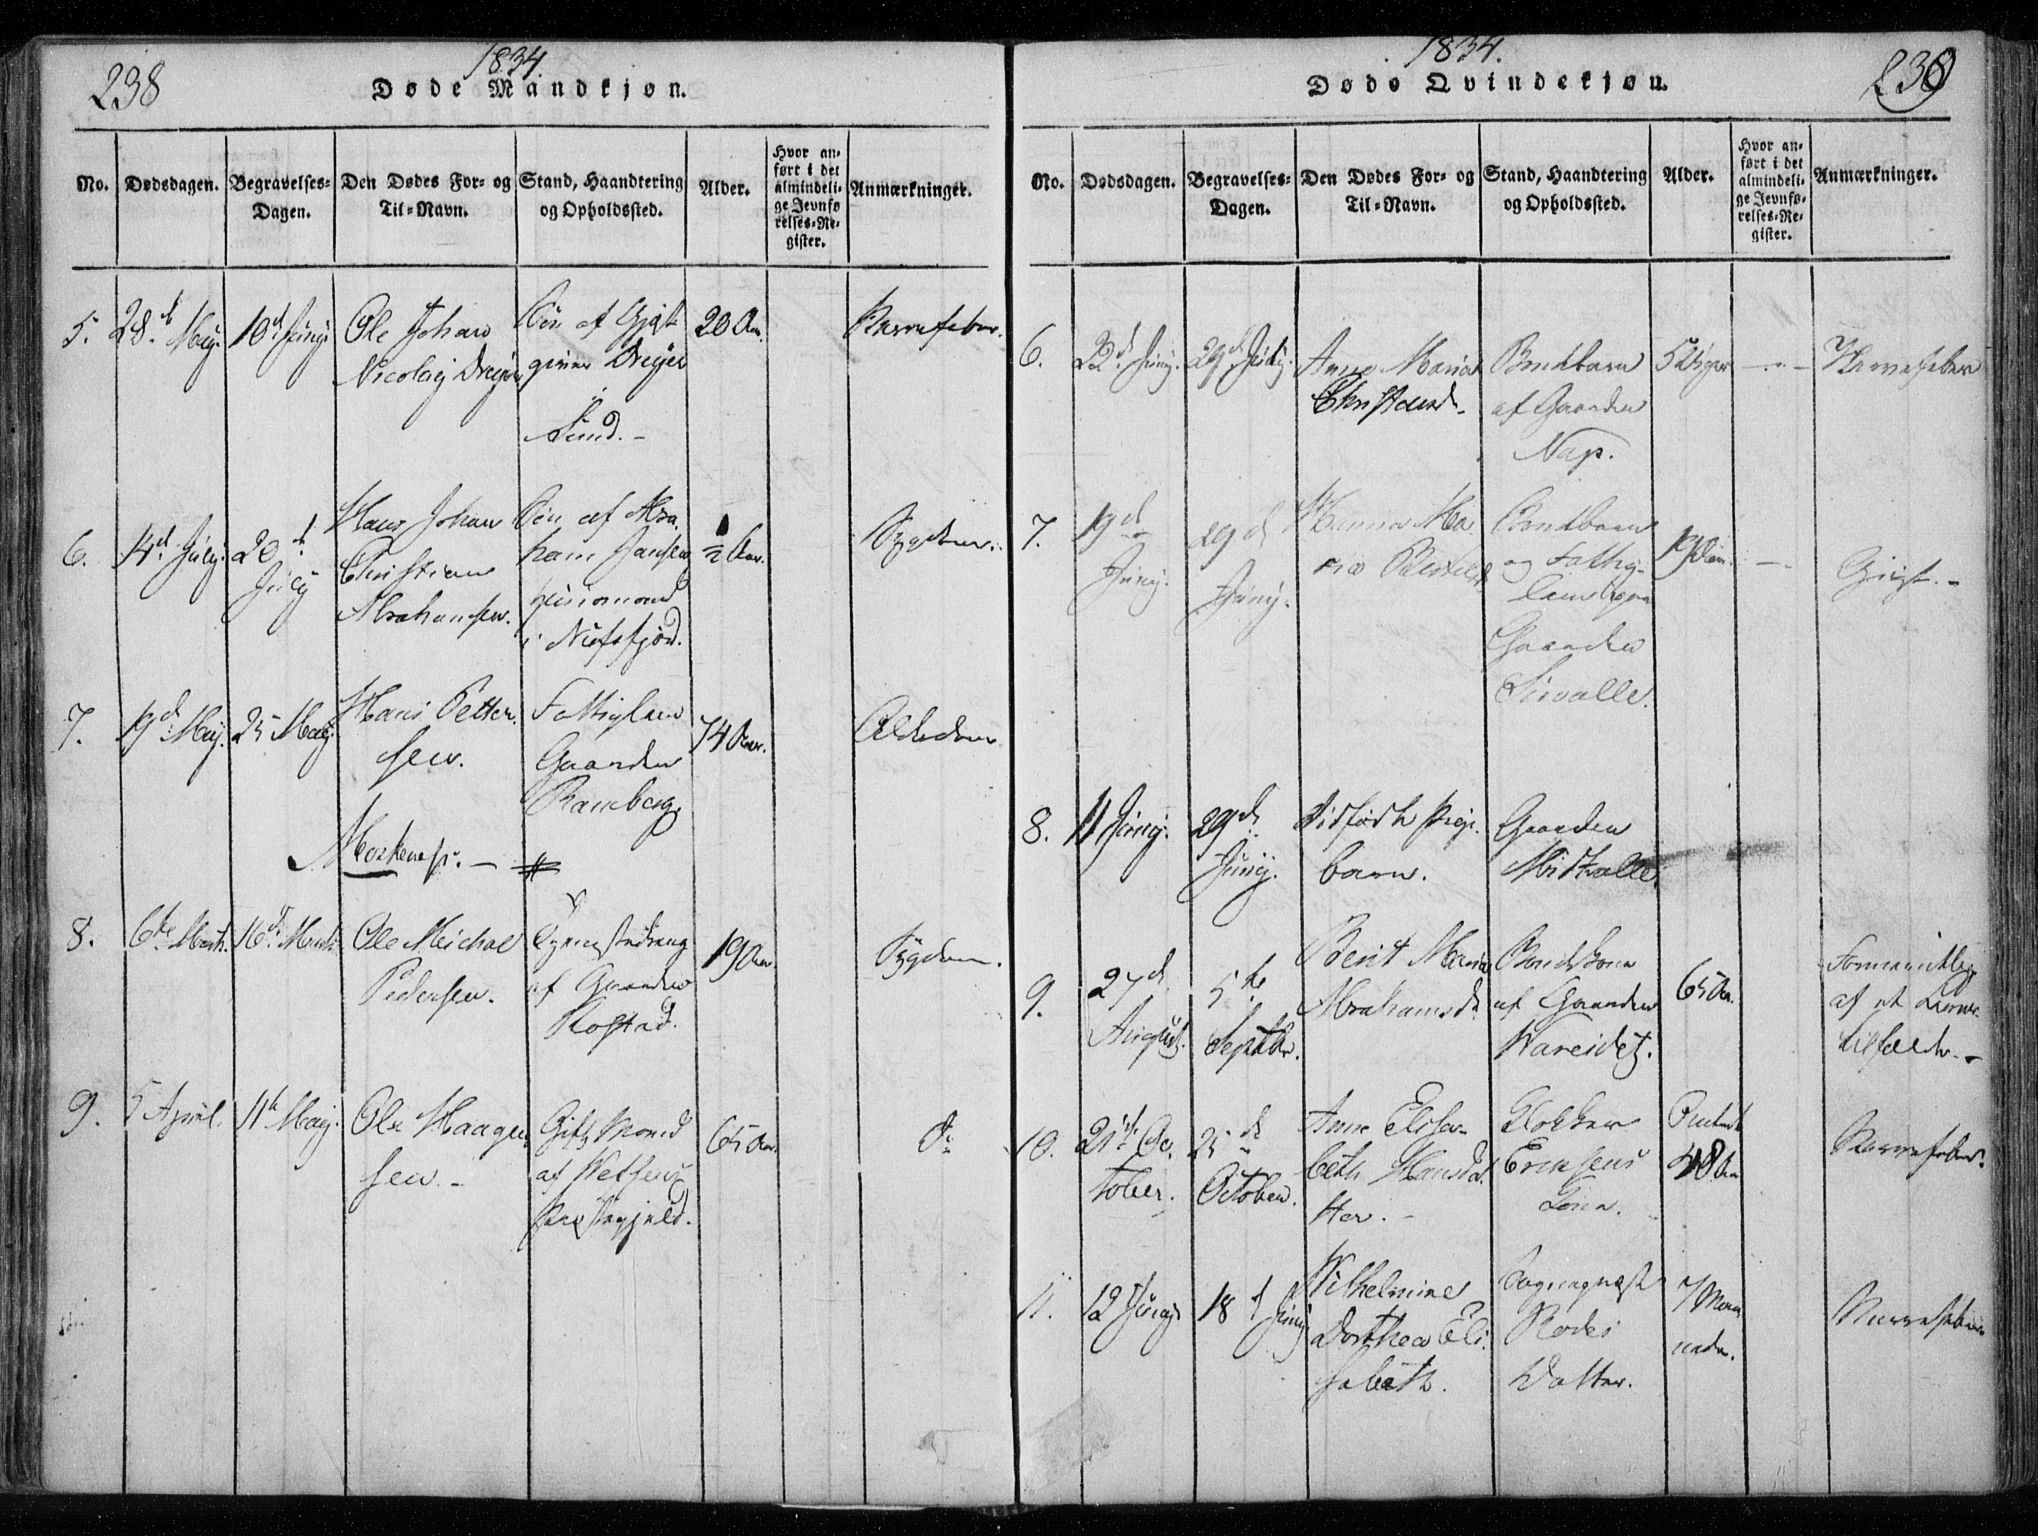 238
1834
Døde Mandkjøn.
No.
Dødsdagen.
Begravelses-
Dagen.
Den Dødes For- og
Til-Navn.
Stand, Haandtering
og Opholdssted.
Alder.
Hvor an-
ført i det
almindeli-
ge Jevnfø
relses-Re-
gister.
Anmærkninger.
5.
28. May.
10 Juny
Ole Johan
Nicolaij Dreyer
Søn af Gjæst-
giver Dreyer
i
Sund. -
20 Aar.
Nervefeber.
6.
14d July.
20
July
Hans Johan
Christian
Abrahamsen.
Søn af Abra
ham Jansen
Huusmand
i Nufsfjord.
½ Aar.
Sygdom.
7.
19d May.
25 May.
Hans Petter.
sen.
Fattiglem
Gaarden
Ramberg.
74 Aar.
Alderdom
Moskenes. -
8.
6te Marts.
16 Marts
Ole Michal
Pedersen.
af Gaarden
19 Aar.
Sygdom.
9.
5 April.
11te May.
Ole Haagen
sen. -
Gift Mand
af
Præstegjeld.
65 Aar.
do
1834.
239
Døde Qvindekjøn.
No.
Dødsdagen.
Begravelses-
Dagen.
Den Dødes For- og
Til-Navn.
Stand, Haandtering
og Opholdssted.
Alder.
Hvor an-
ført i det
almindeli-
ge Jevnfø-
relses-Re-
gister.
Anmærkninger.
6.
22d Juny.
29d Juny.
Anne Maria
Christensd.
Bondebarn
af Gaarden
Nap.
5 Uger
Nervefeber
7.
19d
Juny.
29d
Juny.
Hanna Ma
ria
og Fattig-
lem paa
Gaarden
19 Aar.
Gigt. -
8.
11 Juny.
29d
Juny.
Dødfødt Pige.
barn.
Gaarden
9.
27d
August.
5te
Septbr.
Berit Maria
Abrahamsd.
Bondekone
af Gaarden
Vareidet.
65 Aar.
Formeentlig
af et
tilfælde. -
10.
21 Oc.
tober.
25d
October.
Anne Elisa-
beth Hansdat
ter. -
Klokker
Eriksens
Kone.
48 Aar
Nervefeber.
11.
12 Juny
18 Juny
Wilhelmine
Dorthea Eli.
sabeth.
Sognepræst
Rodes
Datter.
7 Maa
neder.
Nervefeber